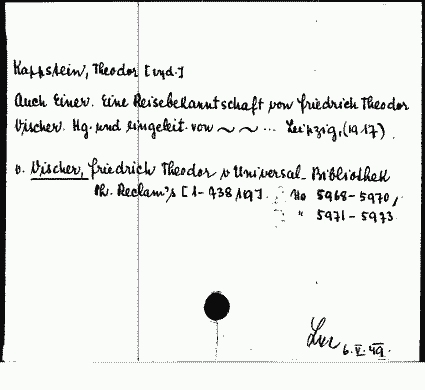 Kappstein, Theodor [wyd.]
Auch Einer. Eine Reisebekanntschaft von Friedrich Theodor
Vischer. Hg. und eingeleit. von ~ ~ ... Leipzig, (1917).
v. Vischer, Friedrich Theodor v Universal-Bibliothek
Ph. Reclam's No 5968-5970,
" 5971-5973
6.V.49.